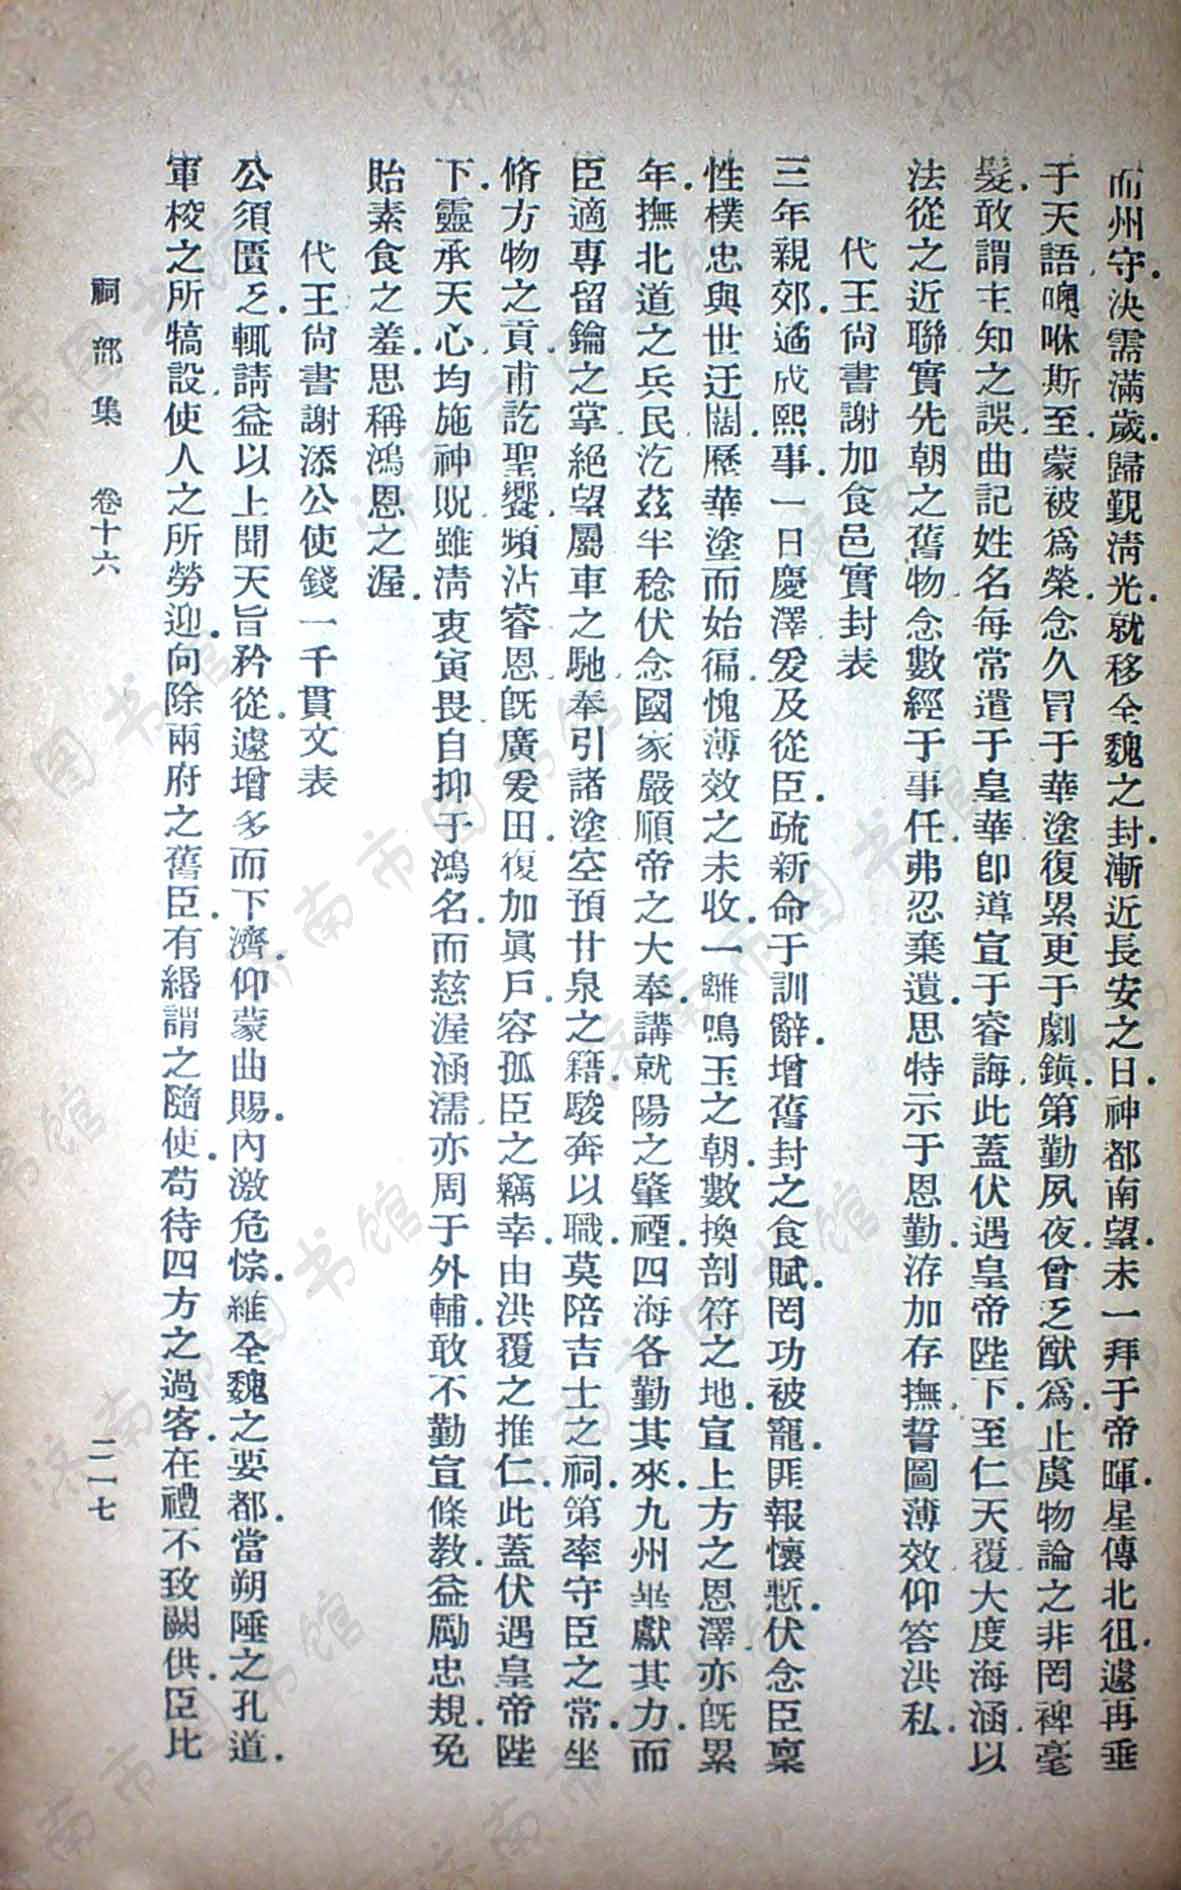 而州守決需滿歲歸覲淸光就移全魏之封漸近長安之日神都南望未一拜于帝暉星傳北徂遽再垂
于天語噢咻斯至蒙被爲榮念久冒于華塗復累更于劇鎭第勤夙夜曾乏猷爲止虞物論之非罔裨毫
髮敢謂主知之誤曲記姓名每常遣于皇華卽導宣于睿誨此蓋伏遇皇帝陛下至仁天覆大度海涵以
法從之近聯實先朝之舊物念數經于事任弗忍棄遺思特示于恩勤洊加存撫誓圖薄效仰答洪私
代王尙書謝加食邑實封表
三年親郊遹成熙事一日慶澤爰及從臣疏新命于訓辭增舊封之食賦罔功被寵匪報懷慙伏念臣稟
性樸忠與世迂闊歷華塗而始徧愧薄效之未收一離鳴玉之朝數換剖符之地宣上方之恩澤亦旣累
年撫北道之兵民汔茲半稔伏念國家嚴順帝之大奉講就陽之肇禋四海各勤其來九州畢獻其力而
臣適專留鑰之掌絕望屬車之馳奉引諸塗空預甘泉之籍駿奔以職莫陪吉士之祠第率守臣之常坐
脩方物之貢甫訖聖饗頻沾睿恩旣廣爰田復加眞戶容孤臣之竊幸由洪覆之推仁此蓋伏遇皇帝陛
下靈承天心均施神貺雖淸衷寅畏自抑于鴻名而慈渥涵濡亦周于外輔敢不勤宣條敎益勵忠規免
貽素食之羞思稱鴻恩之渥
代王尙書謝添公使錢一千貫文表
公須匱乏輒請益以上聞天旨矜從遽增多而下濟仰蒙曲賜內激危悰維全魏之要都當朔陲之孔道
軍校之所犒設使人之所勞迎向除兩府之舊臣有緡謂之隨使苟待四方之過客在禮不致闕供臣比
祠部集 卷十六 二一七